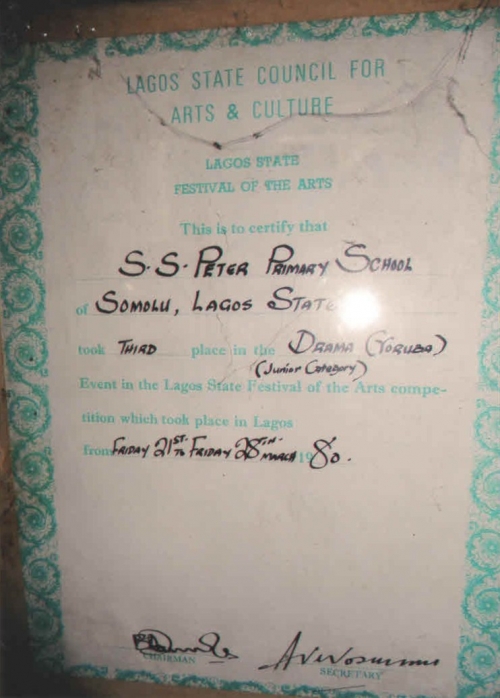 LAGOS STATE COUNCIL FOR
ARTS & CULTURE
LAGOS STATE
FESTIVAL OF THE ARTS
This is to certify that
S.S. PETER PRIMARY SCHOOL
of SOMOLU, LAGOS STATE
took THIRD place in the DRAMA (YORUBA)
(Junior Category)
Event in the Lagos State Festival of the Arts compe-
tition which took place in Lagos
from FRIDAY 21ST. TO FRIDAY 28TH. MARCH 1980.
CHAIRMAN
SECRETARY